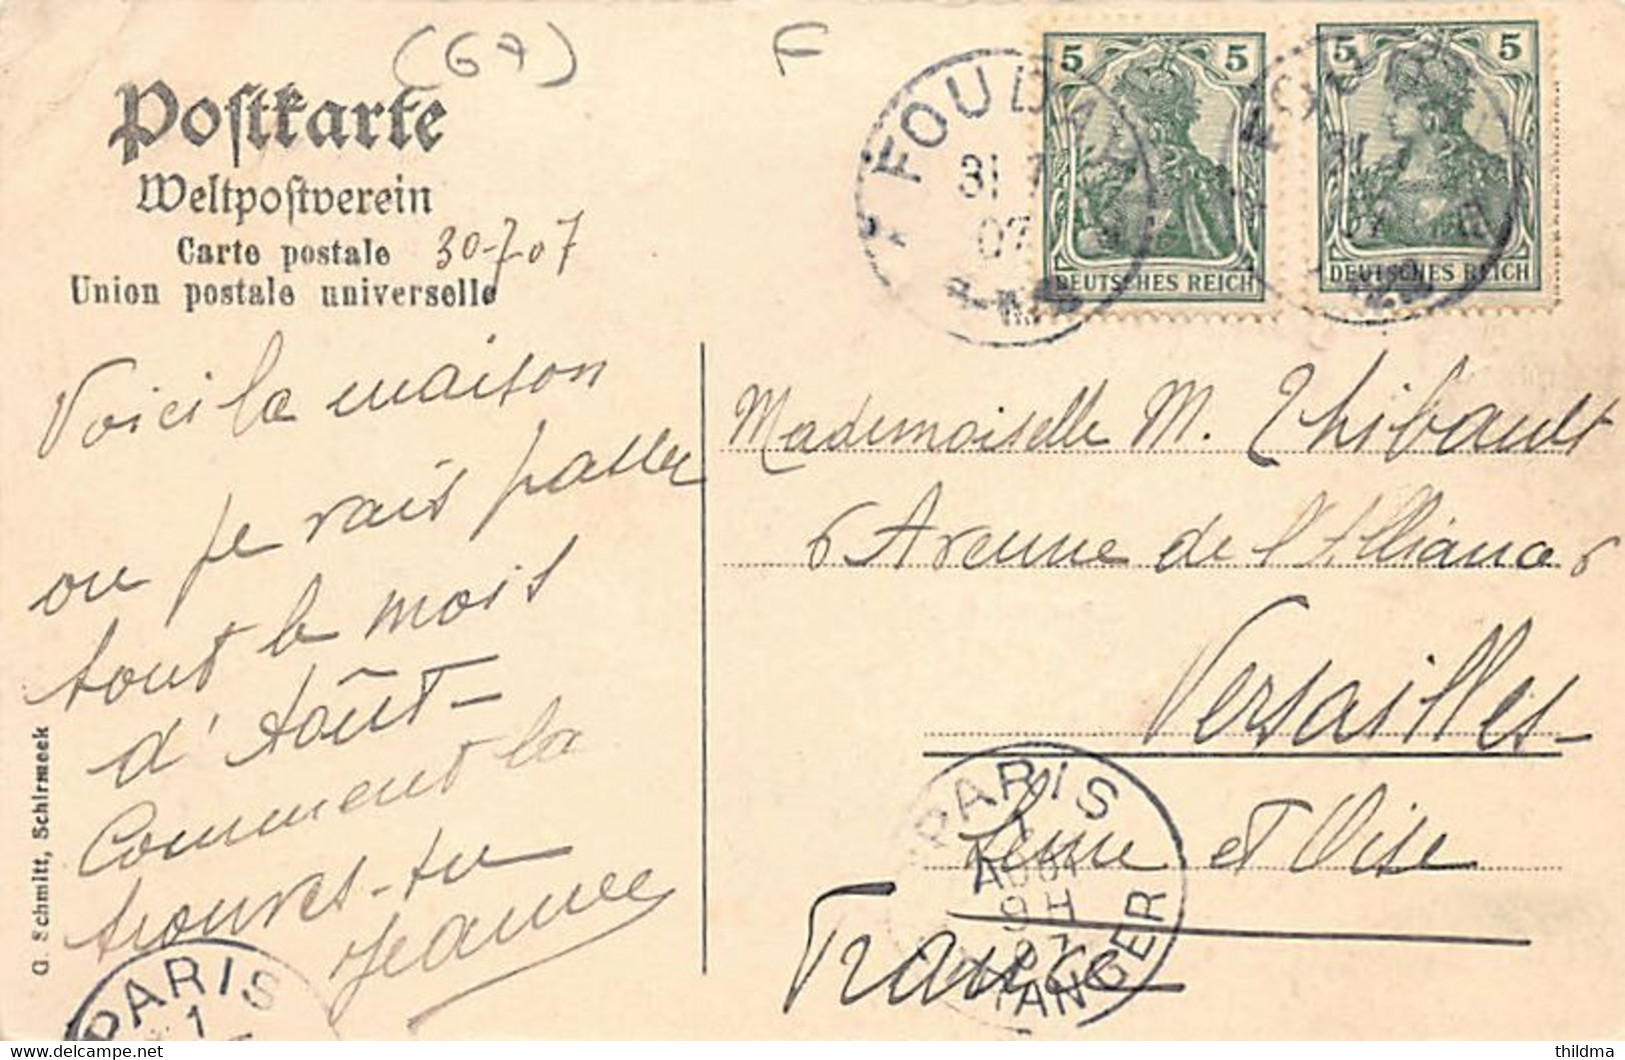 (67) F
Postkarte
Weltpostverein
Carte postale 30-7-07
Union postale universelle
Voici la maison
ou je vais passer
tout le mois
d'Août -
Comment la
trouves-tu
Jeanne
G. Schmitt, Schirmeck
FOUDAY
31 7
07
5 5
DEUTSCHES REICH
5 5
DEUTSCHES REICH
31
07
Mademoiselle M. Thibault
6 Avenue de l'Alliance 6
Versailles -
Seine et Oise
France
PARIS
1
AOUT
9 H
07
ETRANGER
PARIS
1
thildma